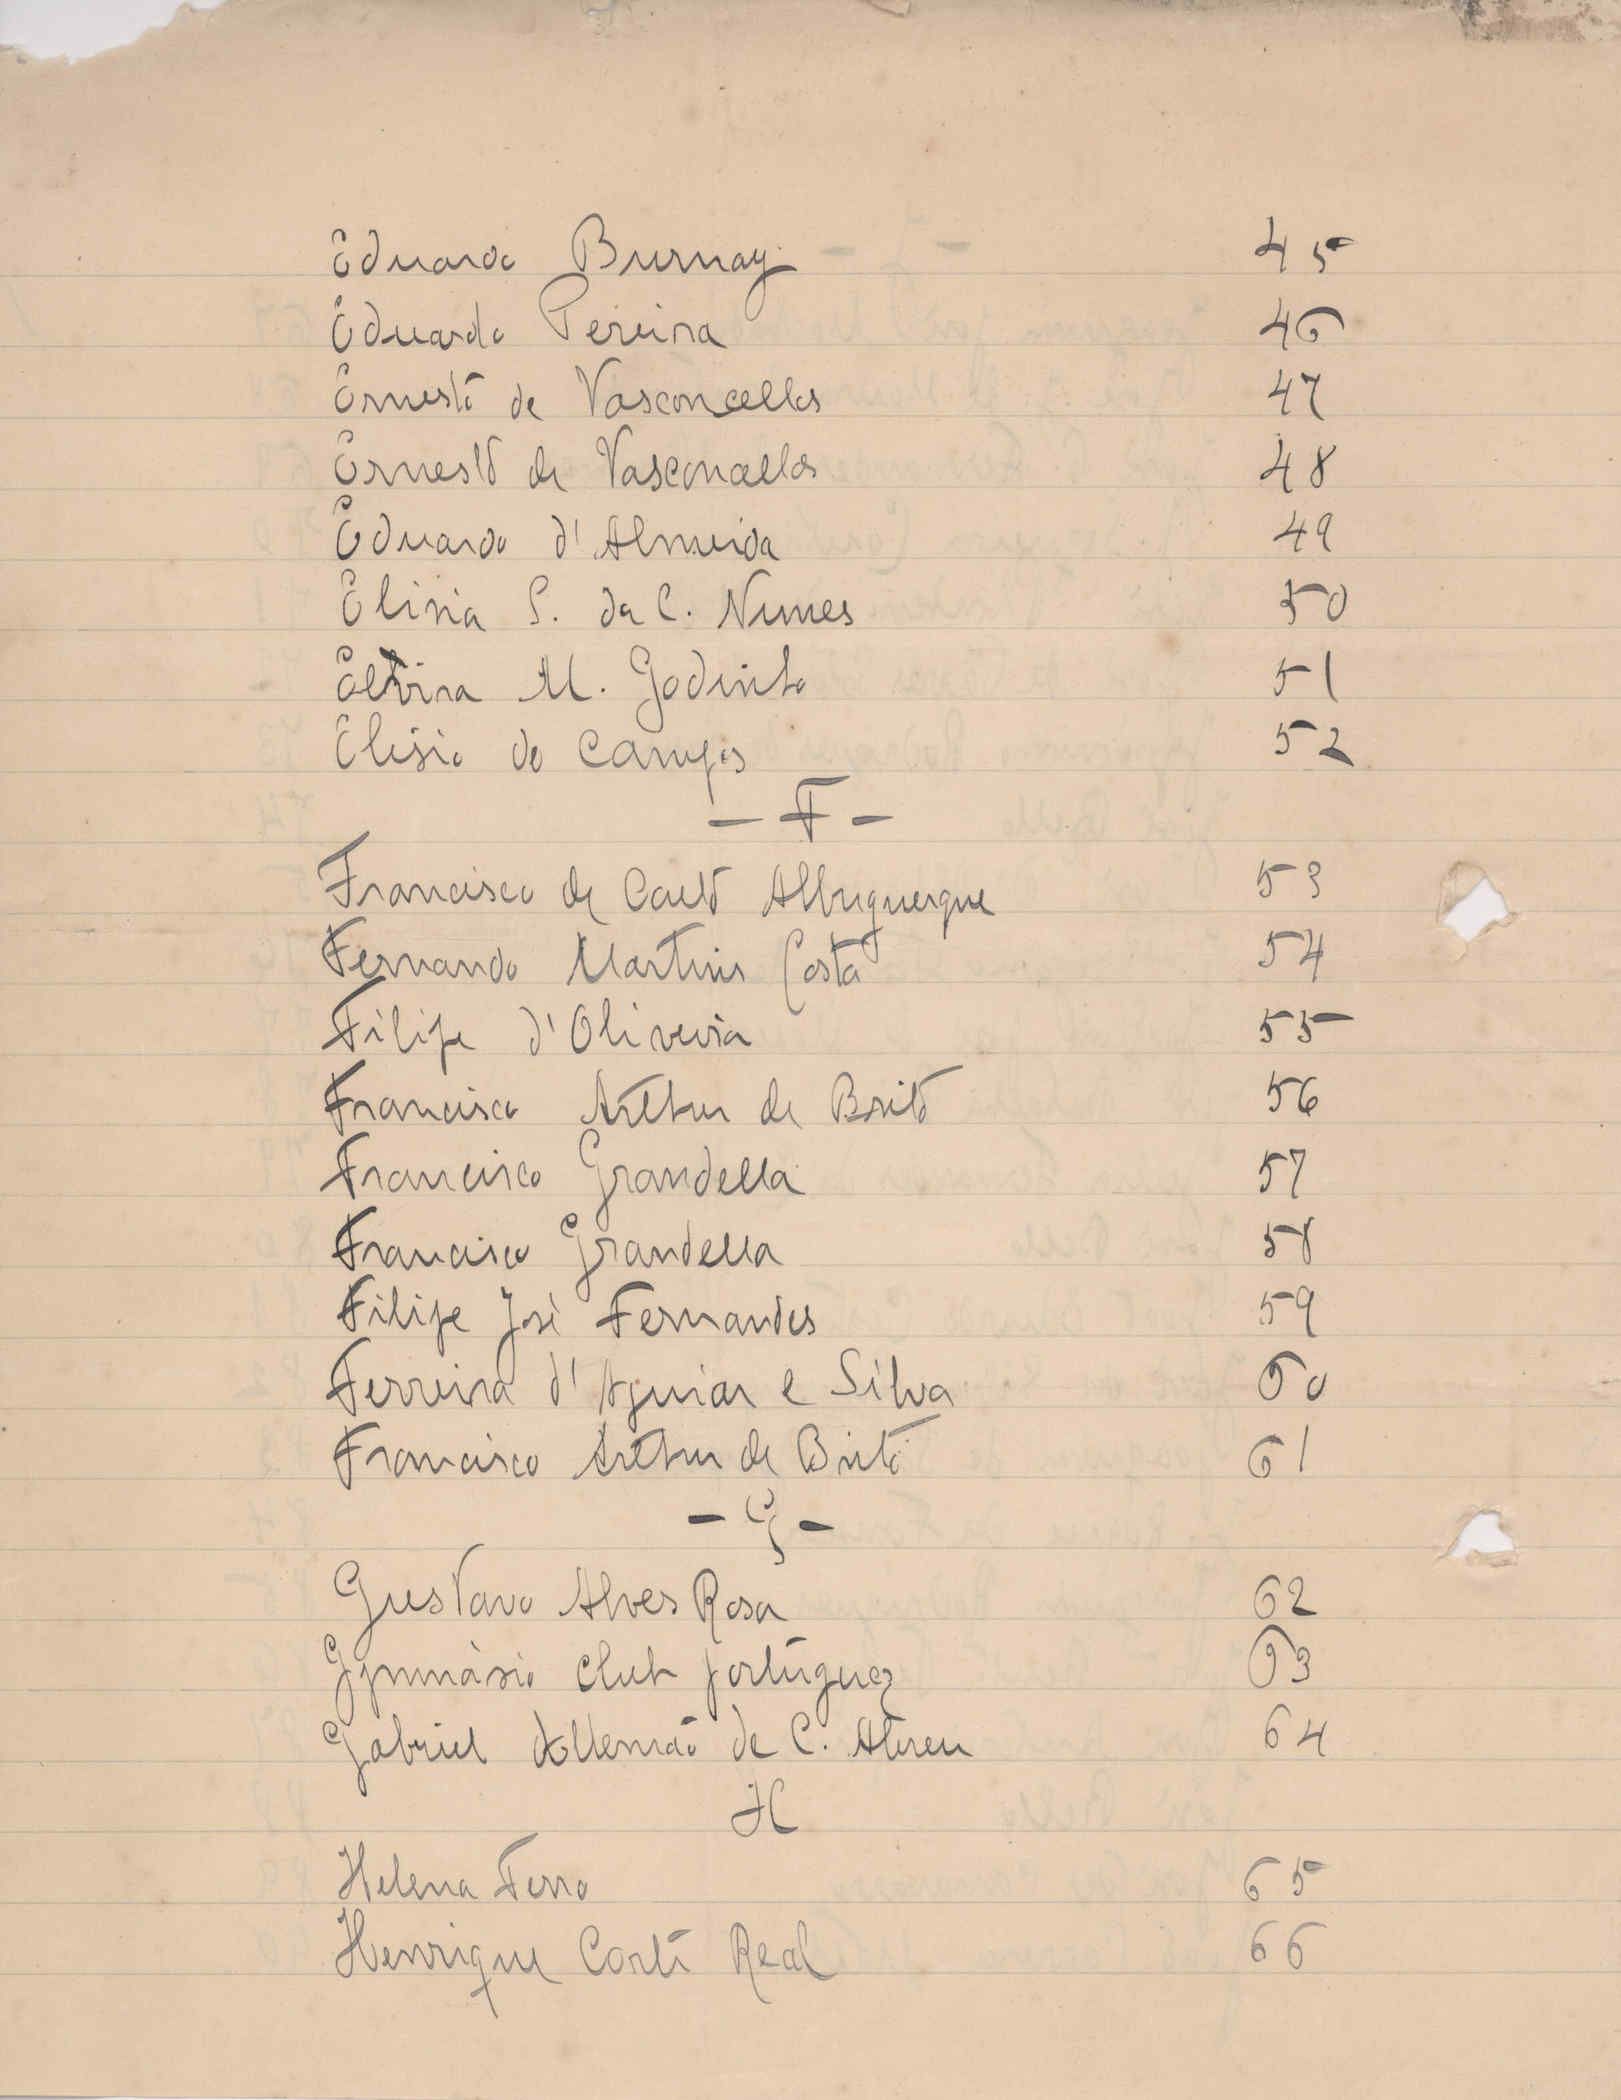 Eduardo Burnay 45
Eduardo Pereira 46
Ernesto de Vasconcellos 47
Ernesto de Vasconcellos 48
Eduardo d'Almeida 49
Elisia S. da C. Nunes 50
Elvira M. Godinho 51
Elisio de Campos 52
- F -
Francisco de Albuquerque 53
Fernando Martins Costa 54
Filipe d'Oliveira 55
Francisco Arthur de Brito 56
Francisco Grandella 57
Francisco Grandella 58
Filipe José Fernandes 59
Ferreira d'Aguiar e Silva 60
Francisco Arthur de Brito 61
- G -
Gustavo Alves Rosa 62
Gymnásio Club portuguez 63
Gabriel Allemão de C. Abreu 64
H
Helena Ferro 65
Henrique Corte Real 66